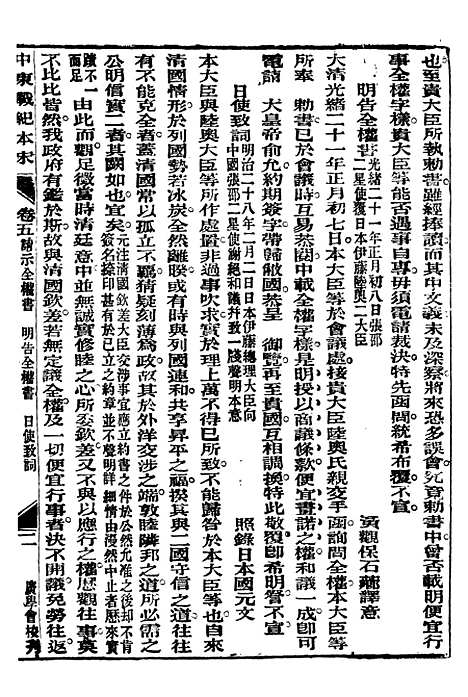 也至貴大臣所執勅書雖經捧讀而其中文義未及深察將來恐多誤會究竟勅書中曾否載明便宜行
事全權字樣貴大臣等能否遇事自專毋須電請裁決特先函問統希布覆不宣
美觀保石龍譯意
明告全權書光緒二十一年正月初八日張邵二星使覆日本伊藤陸奧二大臣
大清光緒二十一年正月初七日本大臣等於會議處接貴大臣陸奧氏親交手函詢問全權本大臣等
所奉 勅書已於會議時互易恭閱中載全權字樣是明授以商議條款便宜畫諾之權和議一成卽可
電請 大皇帝俞允約期簽字帶歸敝國恭呈 御覽再至貴國互相調換特此敬覆卽希明鑒不宣
照錄日本國元文
日使致詞明治二十八年二月二日日本伊藤總理大臣向中國張邵二星使謝絕和議幷致一牋聲明本意
本大臣與陸奧大臣等所作處置非過事吹求實於理上萬不得已所致不能歸咎於本大臣等也自來
清國情形於列國勢若冰炭全然離睽或有時與列國連和共享昇平之福揆其與二國守信之道往往
有不能克全者蓋清國常以孤立不羈猜疑刻薄爲政故其於外洋交涉之端敦睦隣邦之道所必需之
公明信實二者其闕如也宜矣元注清國欽差大臣交涉事宜應立約書之件於公然允准之後却不肯簽名捺印甚有於已立之約章並不聲明詳細情由漫然中止者歷來實蹟不一
由此而觀足徵當時清廷意中並無誠實修睦之心所委欽差又不與以應行之權歷觀往事莫
不比比皆然我政府有鑑於斯故與清國欽差若無定議全權及一切便宜行事者決不開議免勞往返
中東戰紀本末 卷五 諭示全權書 明告全權書 日使致詞 二 廣學會校刊